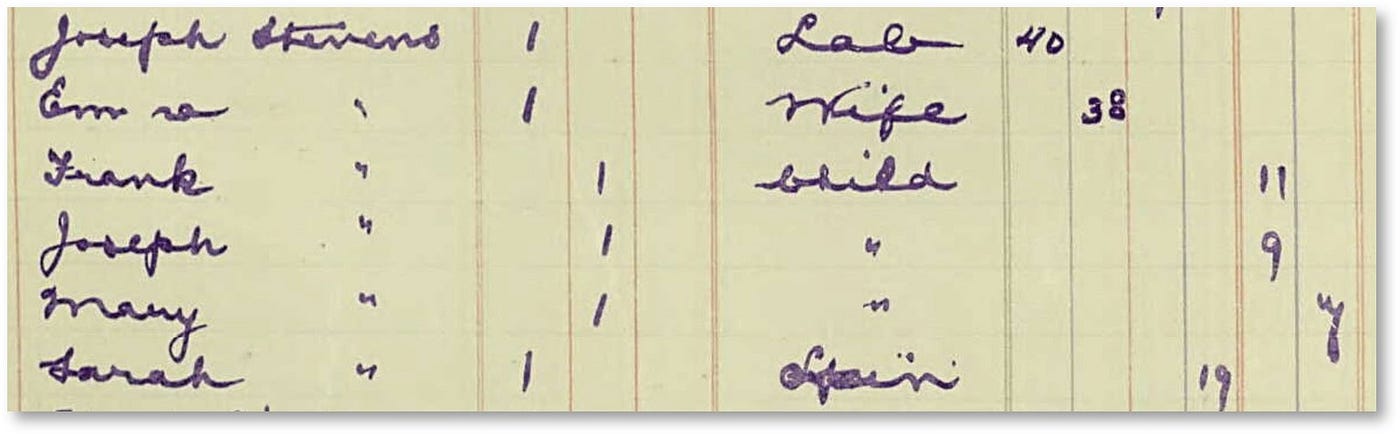 Joseph Stevens 1 Lab 40
Emma " 1 Wife 38
Frank " 1 Child 11
Joseph " 1 " 9
Mary " 1 "
Sarah " 1 Spin 19